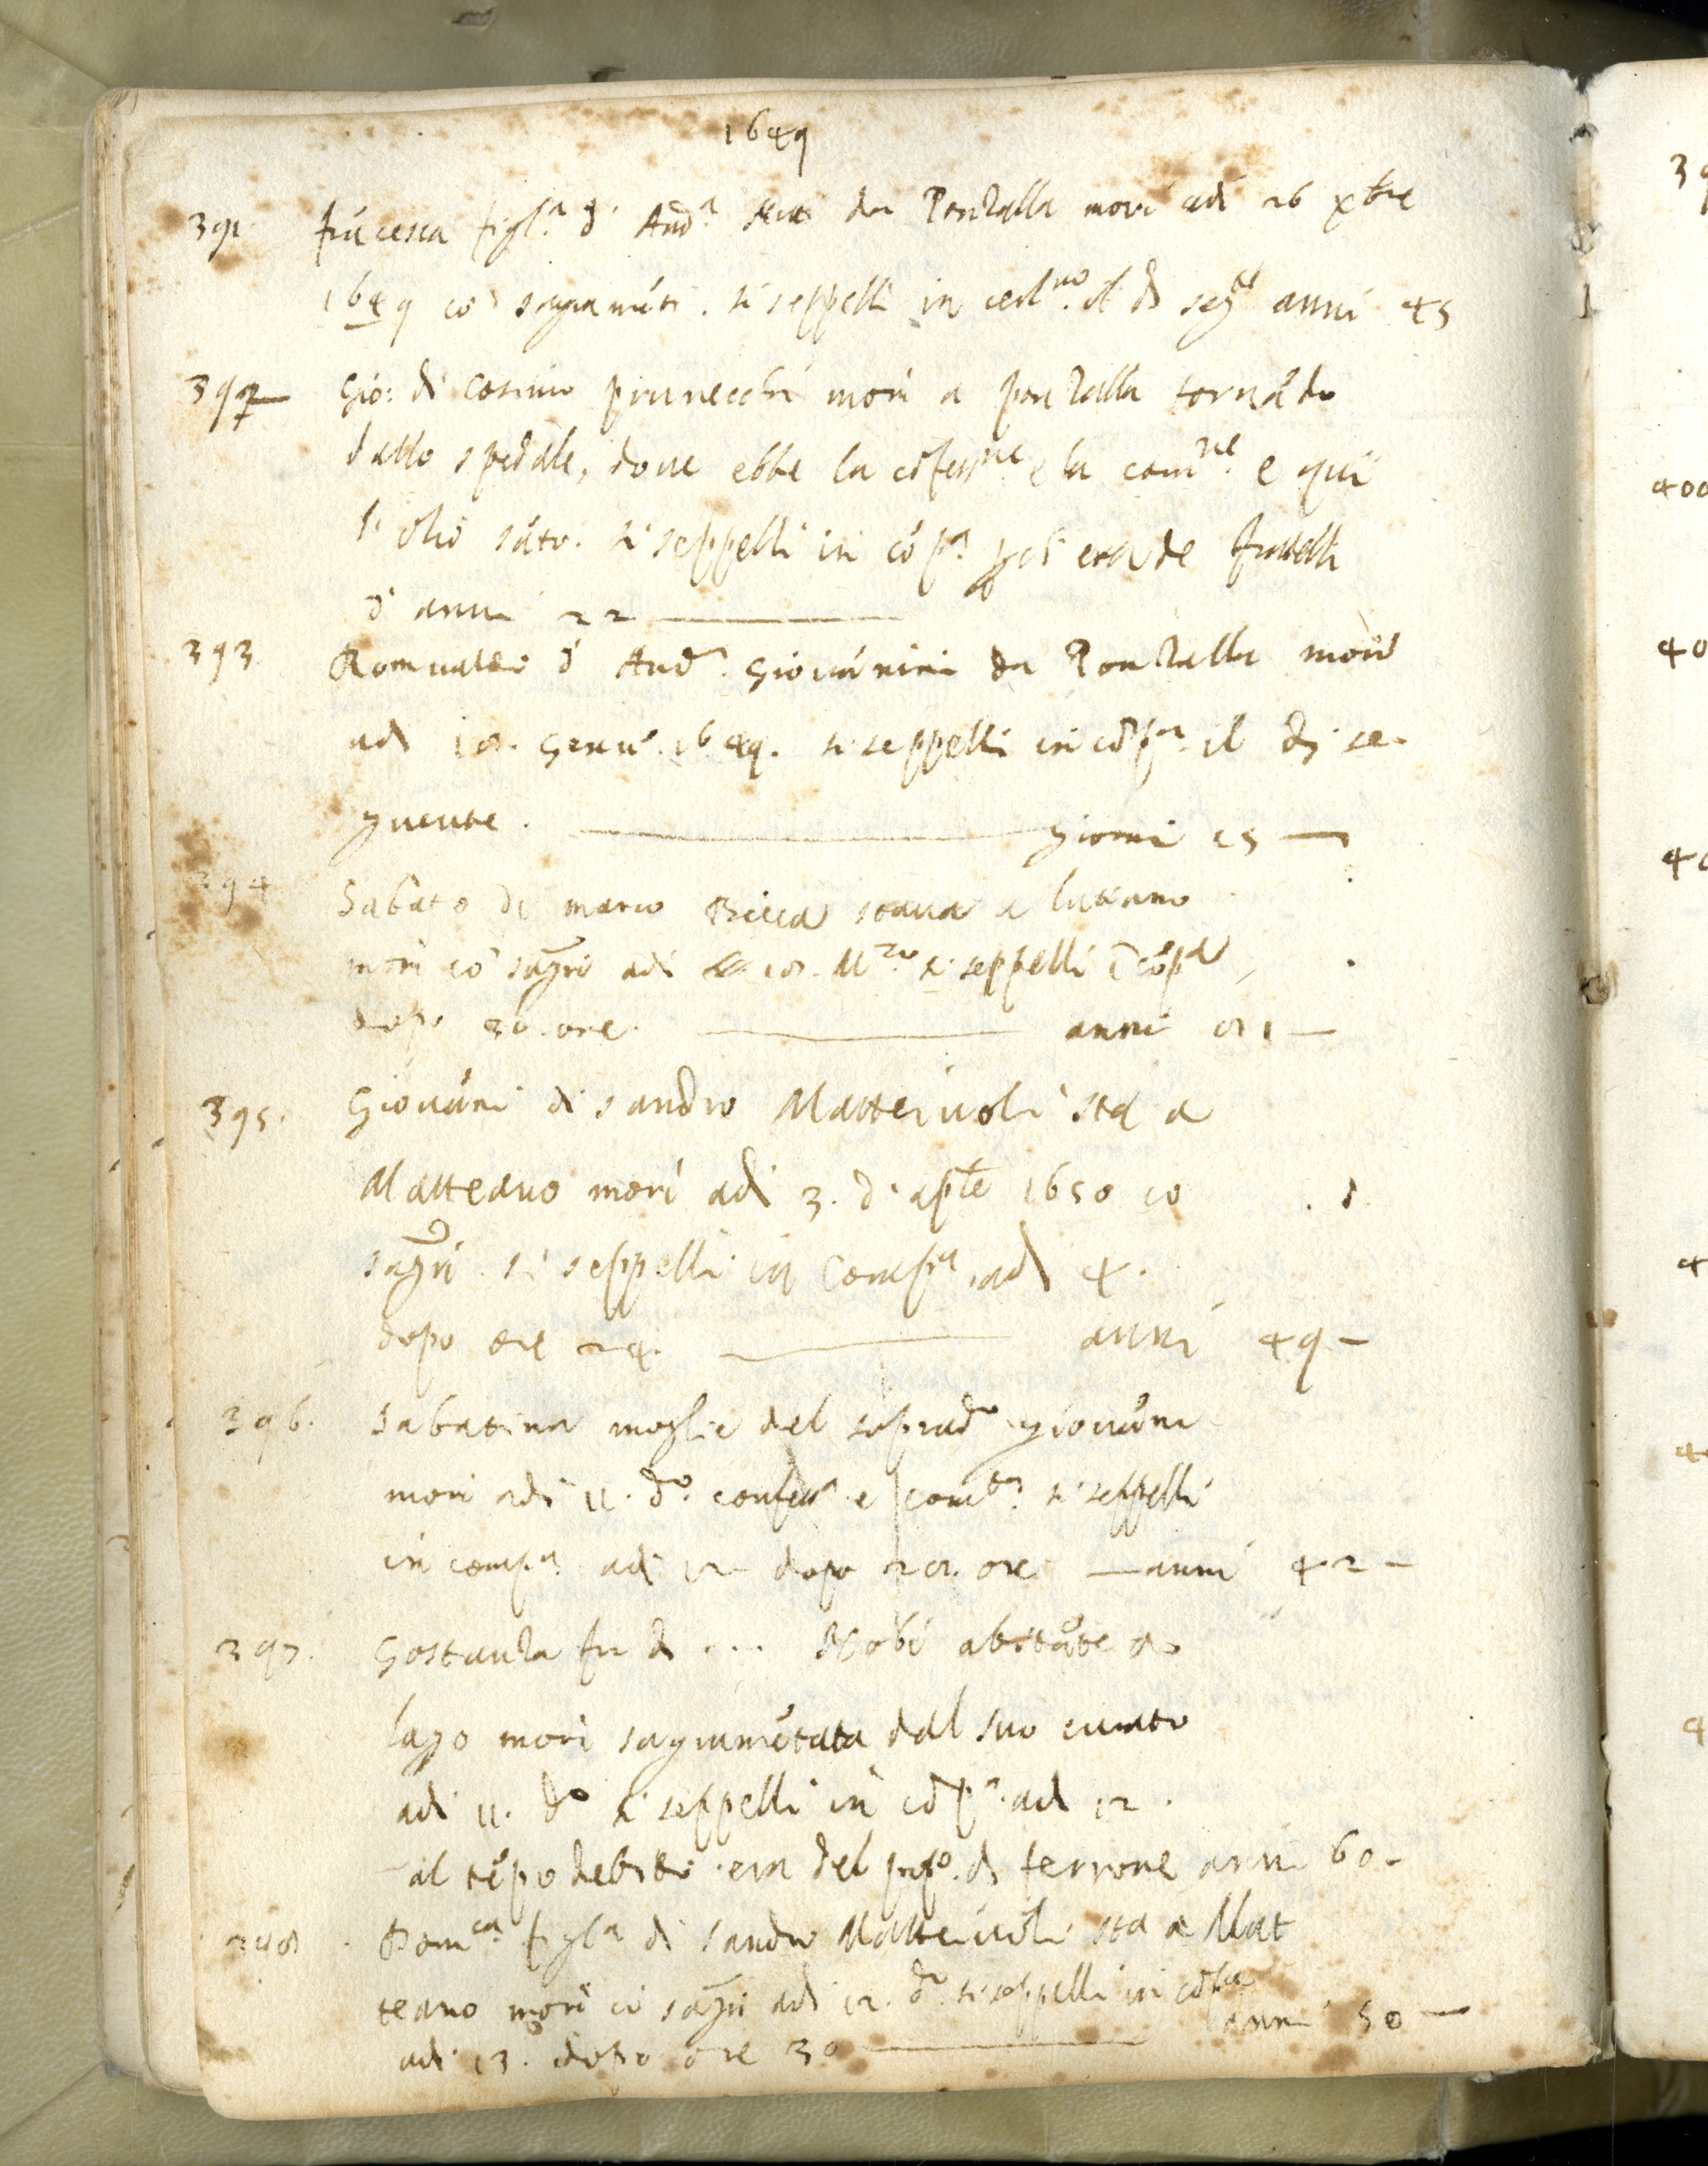 1649
391. frãcesca figl.ª d' And.ª da Pontalla morì adi 26 xbre
1649 cõ sagramẽti. si seppellì in il dì seg.te anni 45
392 Gio: di Cosimo prunecchi morì a pontalla tornãdo
dallo spedale, dove ebbe la cõfess.ne e la com.ne e qui
l'olio sãto. si seppellì in cõp.ª era de fratelli
d' anni 22
393 Romualdo d' And.ª Giovãnini da Pontalla morì
adi 18. Genn.º 1649. si seppellì in cõp.ª il dì se-
guente. giorni 15
394 Sabato di marco stava a
morì cõ sag.ri adi 18. M.zo si seppellì ĩ cõp.ª
dopo 30. ore. anni 81
395. Giovãni di sandro Matteiuoli sta a
Matteano morì adi 3. d' ap.le 1650 cõ
sag.ri si seppellì in Comp.ª adi 4.
dopo ore 24. anni 49
396. Sabatina moglie del soprad.º giovãni
morì adi 11. d.º confess.ª e com.ta si seppellì
in comp.ª adi 12 dopo 28. ore anni 42
397. Gostanza fu di ... abitãte a
lago morì sagramẽtata dal suo curato
adi 11. d.º si seppellì in cõp.ª adi 12.
al tẽpo debito era del pop.º di ferrone anni 60
398. Dom.ca figl.ª di Sandro Matteiuoli sta a Mat
teano morì cõ sag.ri adi 12. d.º si seppellì in cõp.ª
adi 13. dopo ore 30 anni 50